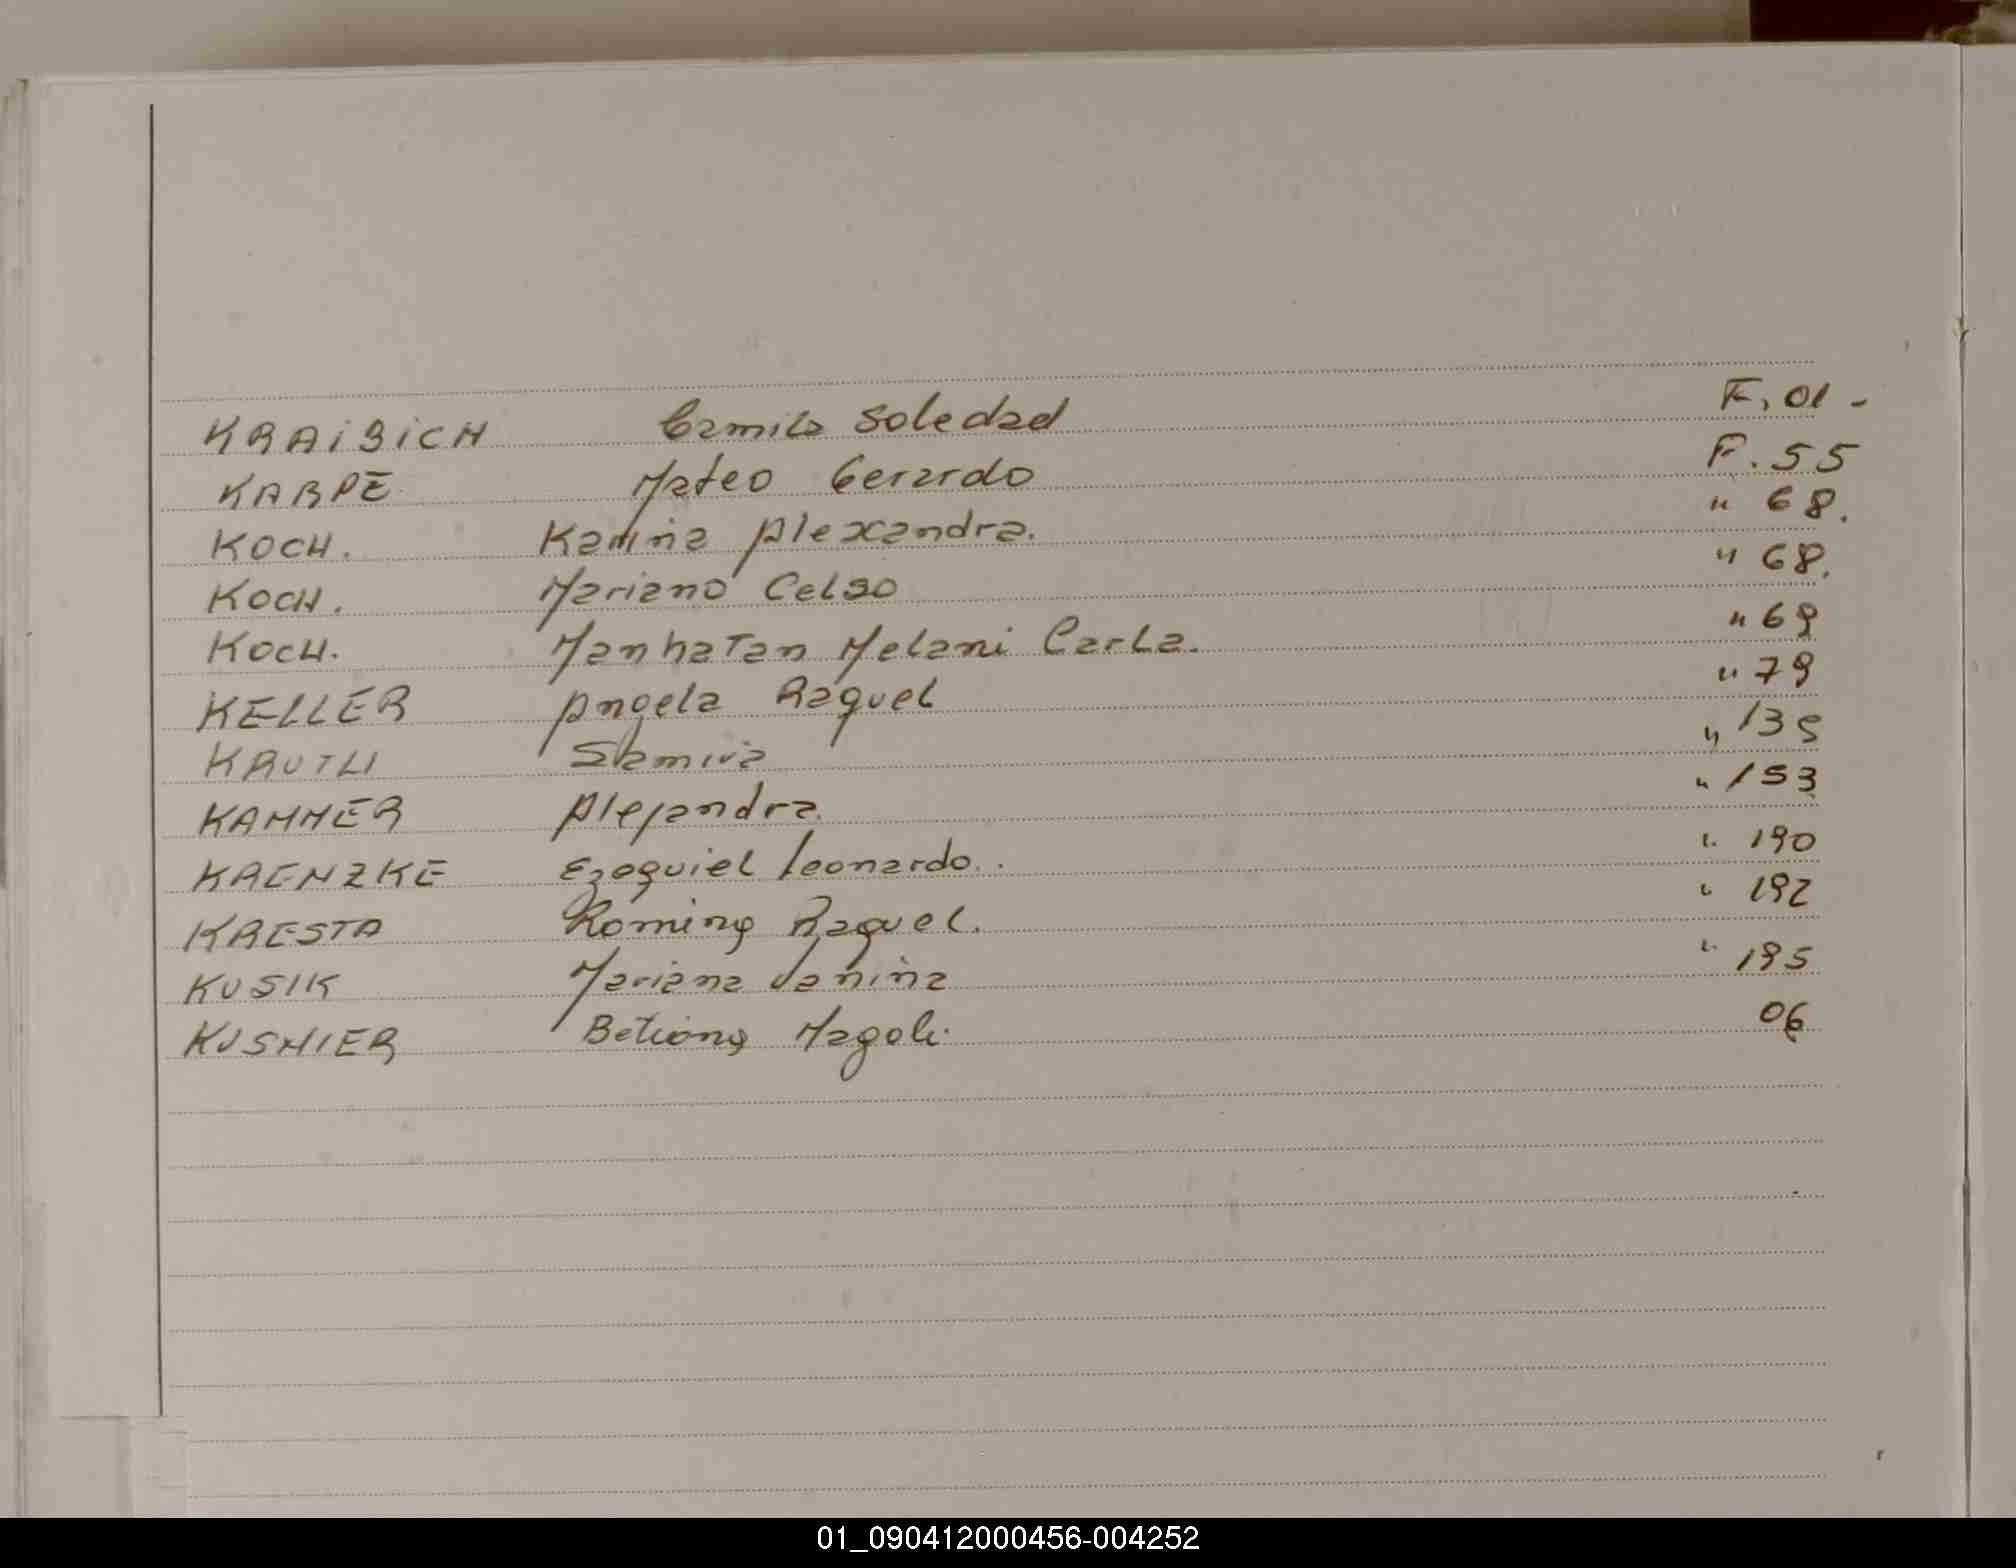 KRAIBICH Camila Soledad F. 01 -
KARPE Mateo Gerardo F. 55
KOCH. Karina Alexandra. " 68.
KOCH. Mariano Celso " 68.
KOCH. Manhatan Melani Carla. " 69
KELLER Angela Raquel " 79
KRUTLI Samira " 135
KAMMER Alejandra. " 153
KRENZKE Ezequiel Leonardo. . " 190
KRESTA Romina Raquel. " 192
KUSIK Mariana Janina " 195
KUSNIER Betiana Magali. 06
01_090412000456-004252